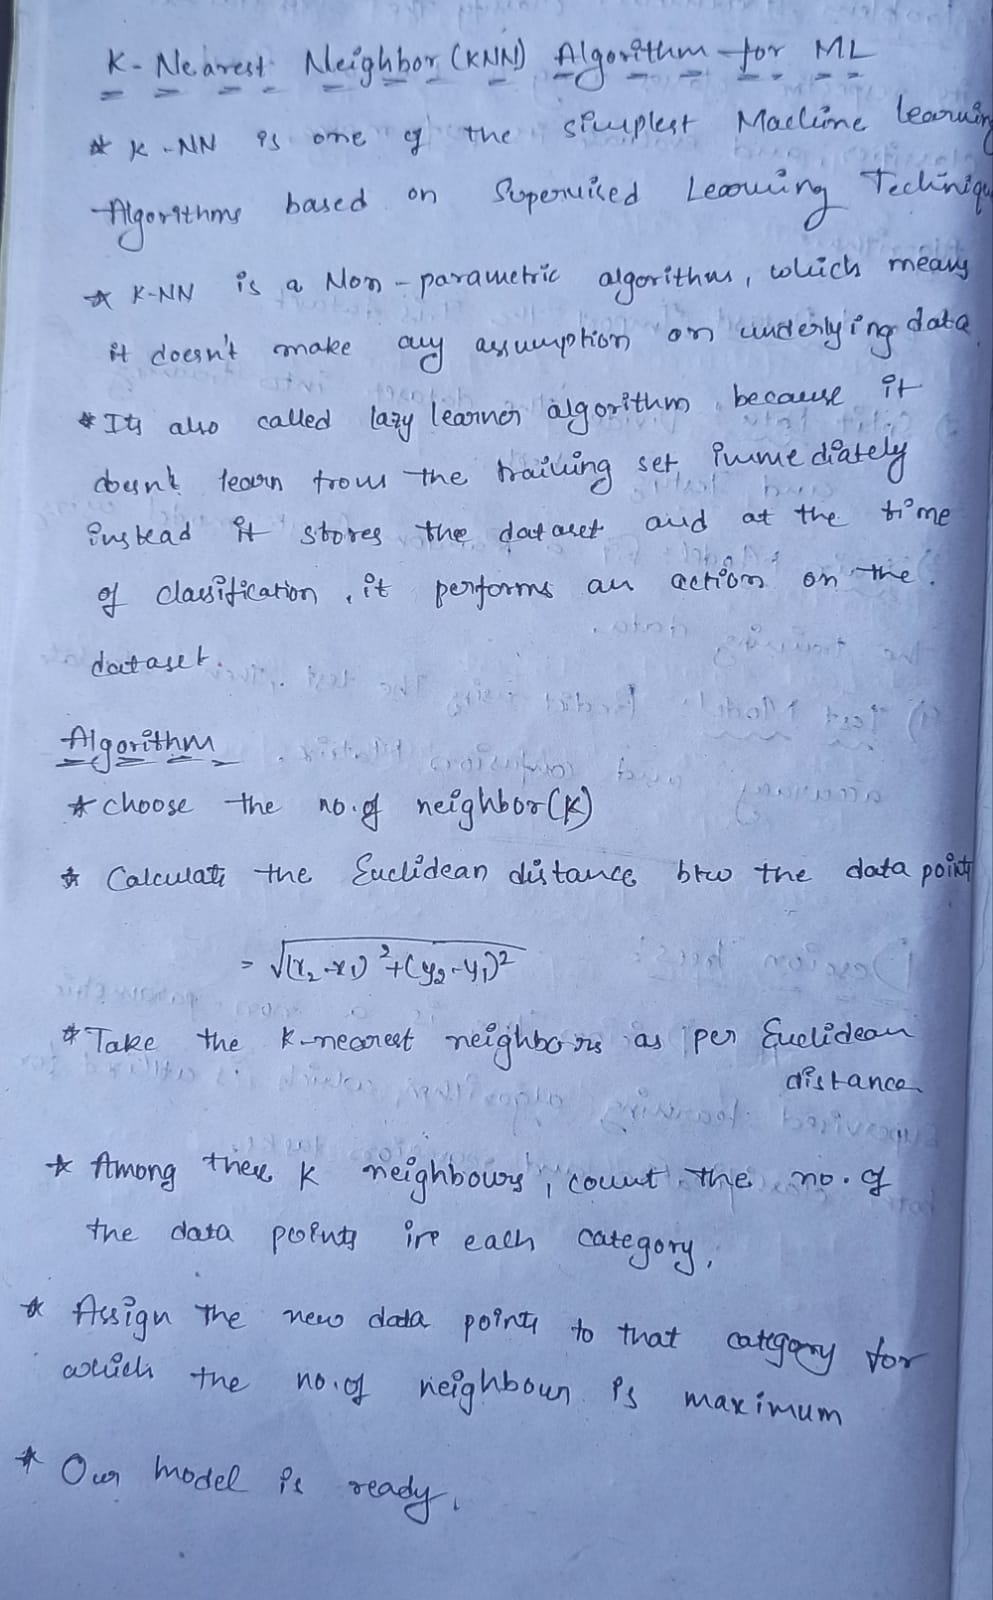 K-Nearest Neighbor (KNN) Algorithm for ML
* K-NN is one of the simplest Machine learning
Algorithms based on Supervised Learning Technique
* K-NN is a Non-parametric algorithm, which means
it doesn't make any assumption on underlying data
* Its also called lazy learner algorithm because it
doesn't learn from the training set immediately
instead it stores the dataset and at the time
of classification, it performs an action on the.
dataset.
Algorithm
* choose the no.of neighbor(K)
* Calculate the Euclidean distance btw the data points
= √(x₂-x₁)²+(y₂-y₁)²
* Take the K-nearest neighbors as per Euclidean
distance
* Among these K neighbours, count the no. of
the data points in each category.
* Assign the new data points to that category for
which the no.of neighbour is maximum
* Our model is ready.